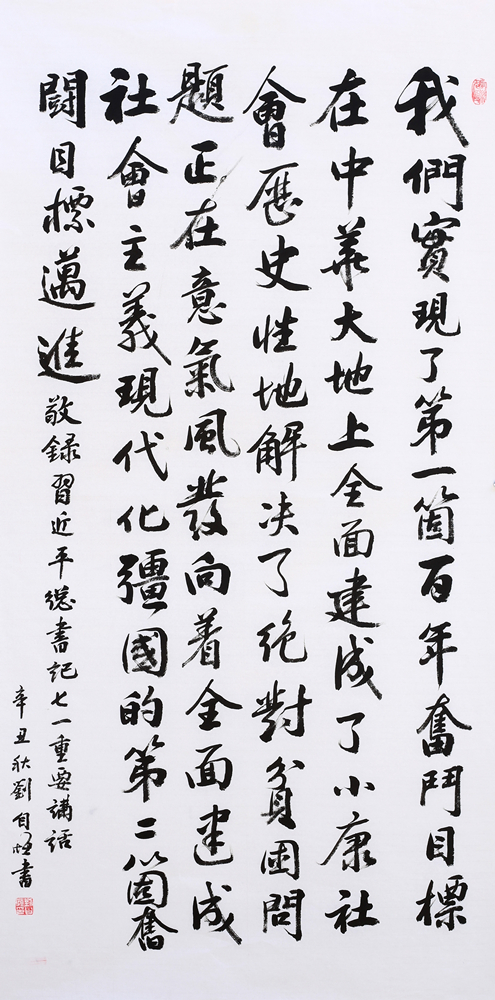 我們實現了第一箇百年奮鬥目標
在中華大地上全面建成了小康社
會歷史性地解决了絶對貧困問
題正在意氣風發向着全面建成
社會主義現代化彊國的第二箇奮
鬪目標邁進
敬録習近平總書記七一重要講話
辛丑秋劉自恆書